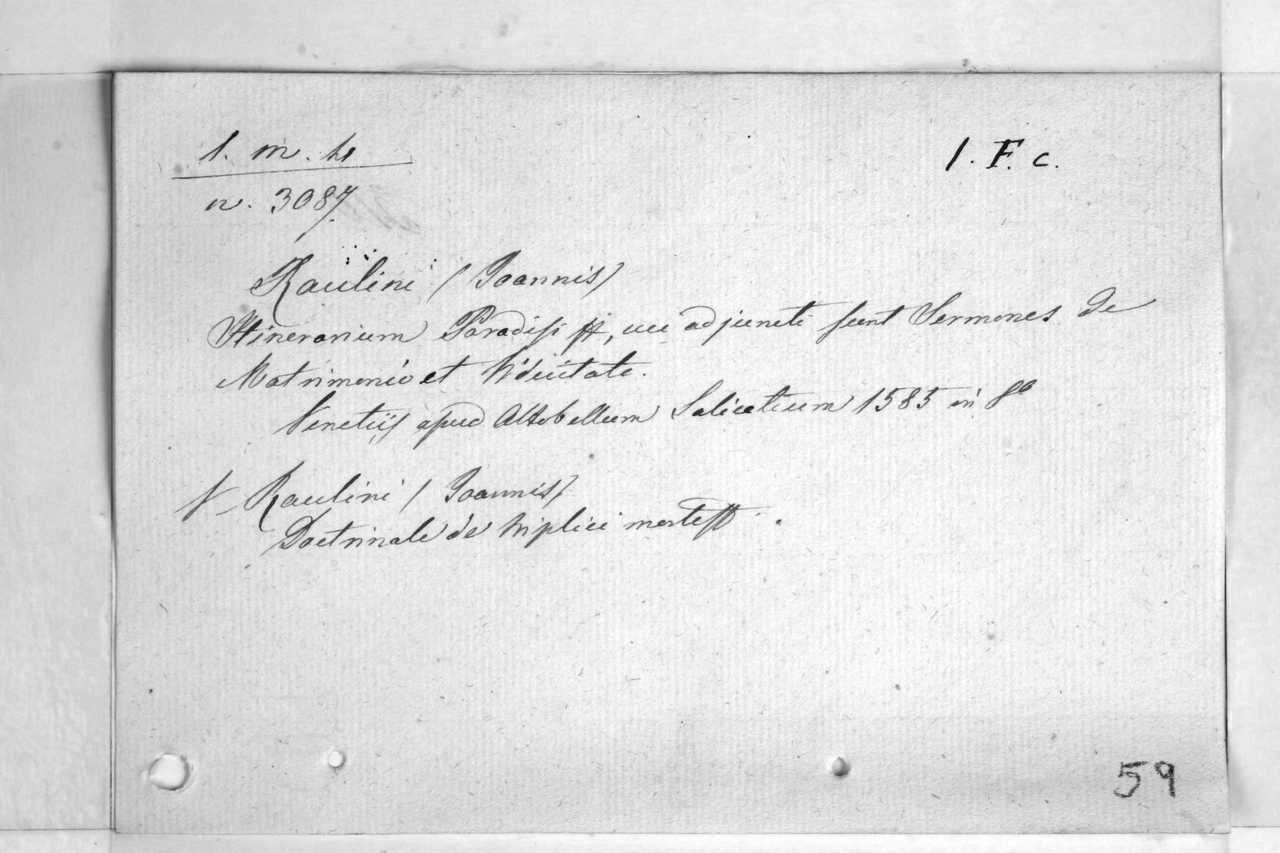 1. m. h
1. F. c.
n. 3087
Raulini (Joannis)
Itinerarium Paradisi, cui adjuncti sunt Sermones de
Matrimonio et Viduitate.
Venetiis apud Altobellum Salicatium 1585 in 8º
Raulini (Joannis)
Doctrinale de triplici morte
59